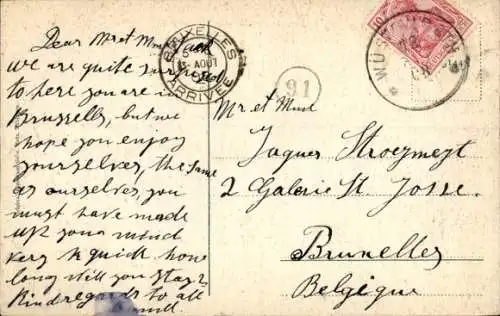 Dear Mr et Mme
we are quite surprised
to here you are in
Brussells, but we
hope you enjoy
yourselves, the same
as ourselves, you
must have made
up your mind
very quick how
long will you stay
Kind regards to all
BRUXELLES
5
AOUT
ARRIVÉE
91
Mr et Mme
Jaques
2 Galerie St. Josse.
Bruxelles
Belgique